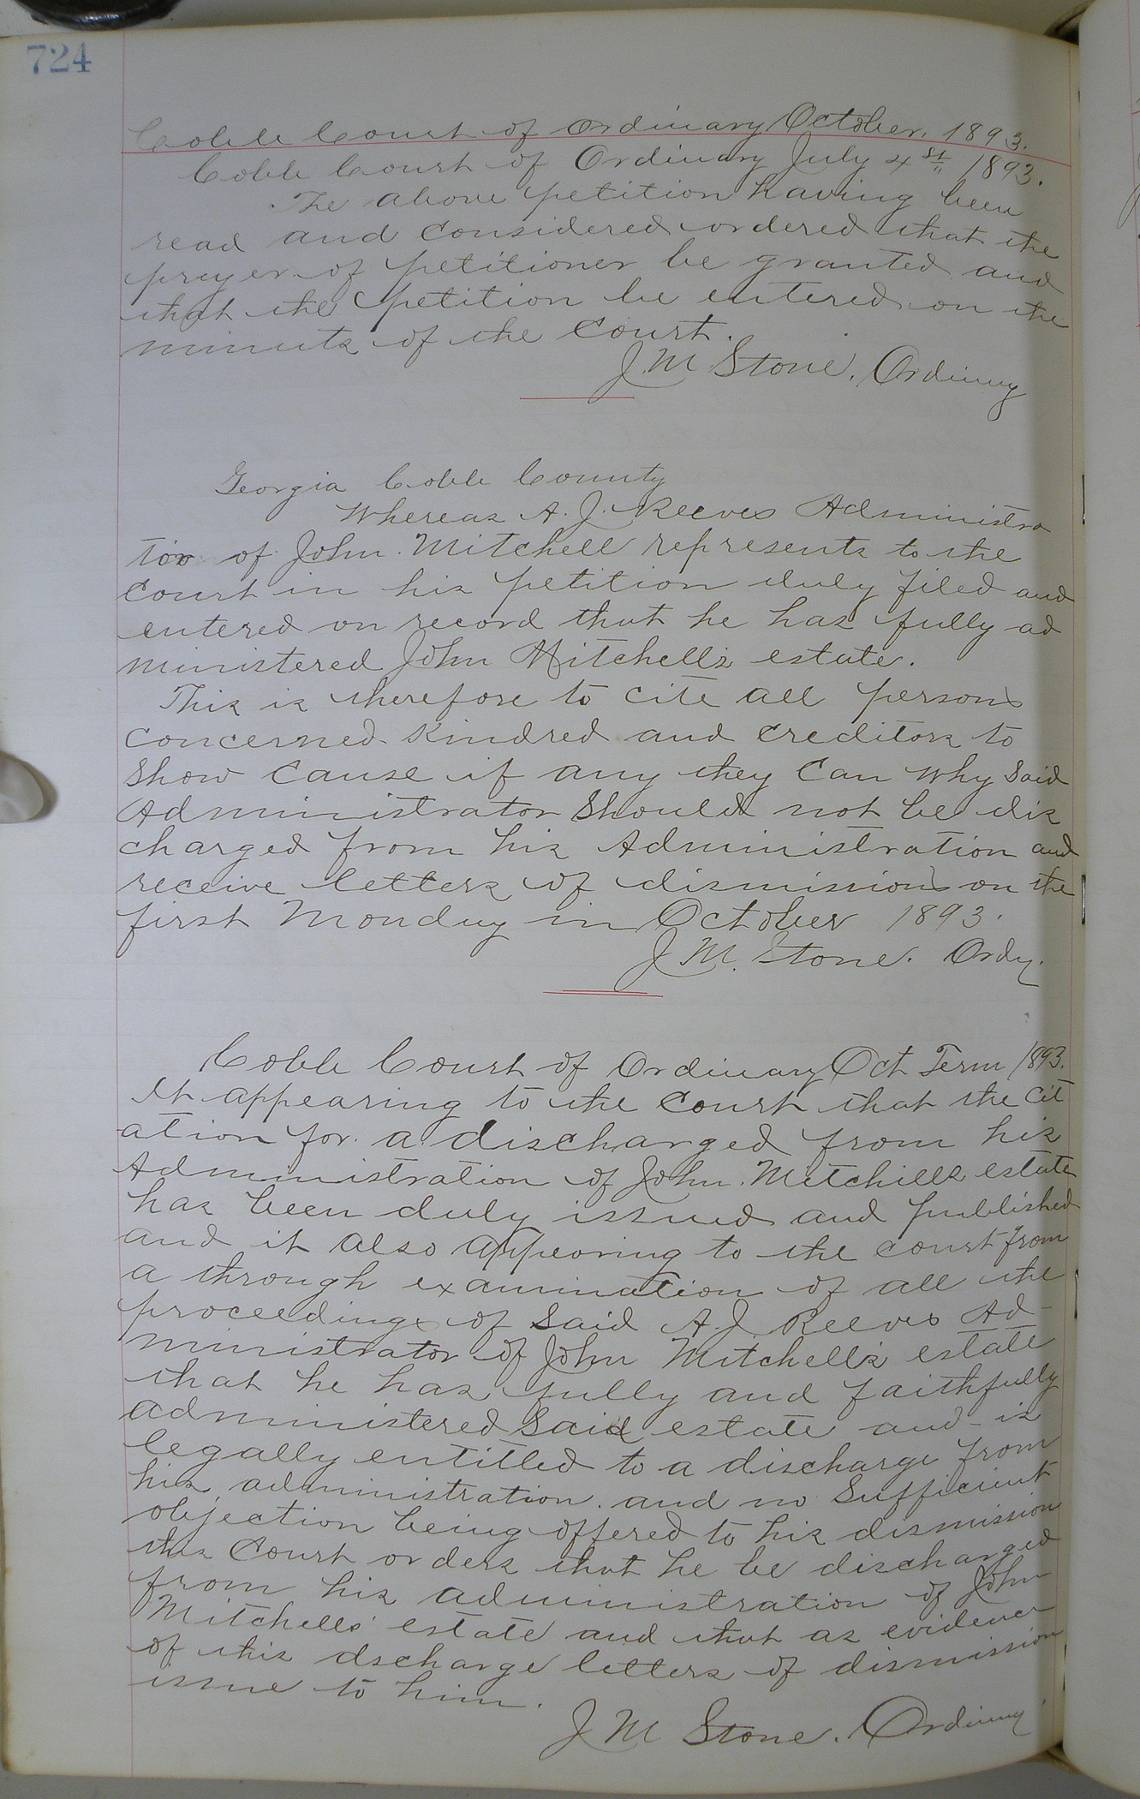 724
Cobb Court of Ordinary October, 1893.
Cobb Court of Ordinary July 4st 1893.
The above petition having been
read and considered ordered that the
prayer of petitioner be granted and
that the petition be entered on the
minuts of the Court.
J. M Stone. Ordinary
Georgia Cobb County
Whereas A. J. Reeves Administra
tor of John. Mitchell represents to the
Court in his petition duly filed and
entered on record that he has fully ad
ministered John Mitchell's estate.
This is therefore to cite all persons
concerned kindred and creditors to
show cause if any they can why said
Administrator should not be dis
charged from his Administration and
receive letters of dismission on the
first Monday in October 1893.
J. M. Stone. Ordy.
Cobb Court of Ordinary Oct Term 1893.
It appearing to the Court that the Cit
ation for a discharged from his
Administration of John. Mitchells estate
has been duly issued and published
and it also appearing to the court from
a through examination of all the
proceedings of Said A. J. Reeves Ad-
ministrator of John Mitchell's estate
that he has fully and faithfully
administered Said estate and is
legally entitled to a discharge from
his administration. and no Sufficient
objection being offered to his dismission
the Court orders that he be discharged
from his administration of John
Mitchells' estate and that as evidence
of this dscharge letters of dismission
issue to him.
J M Stone. Ordinary